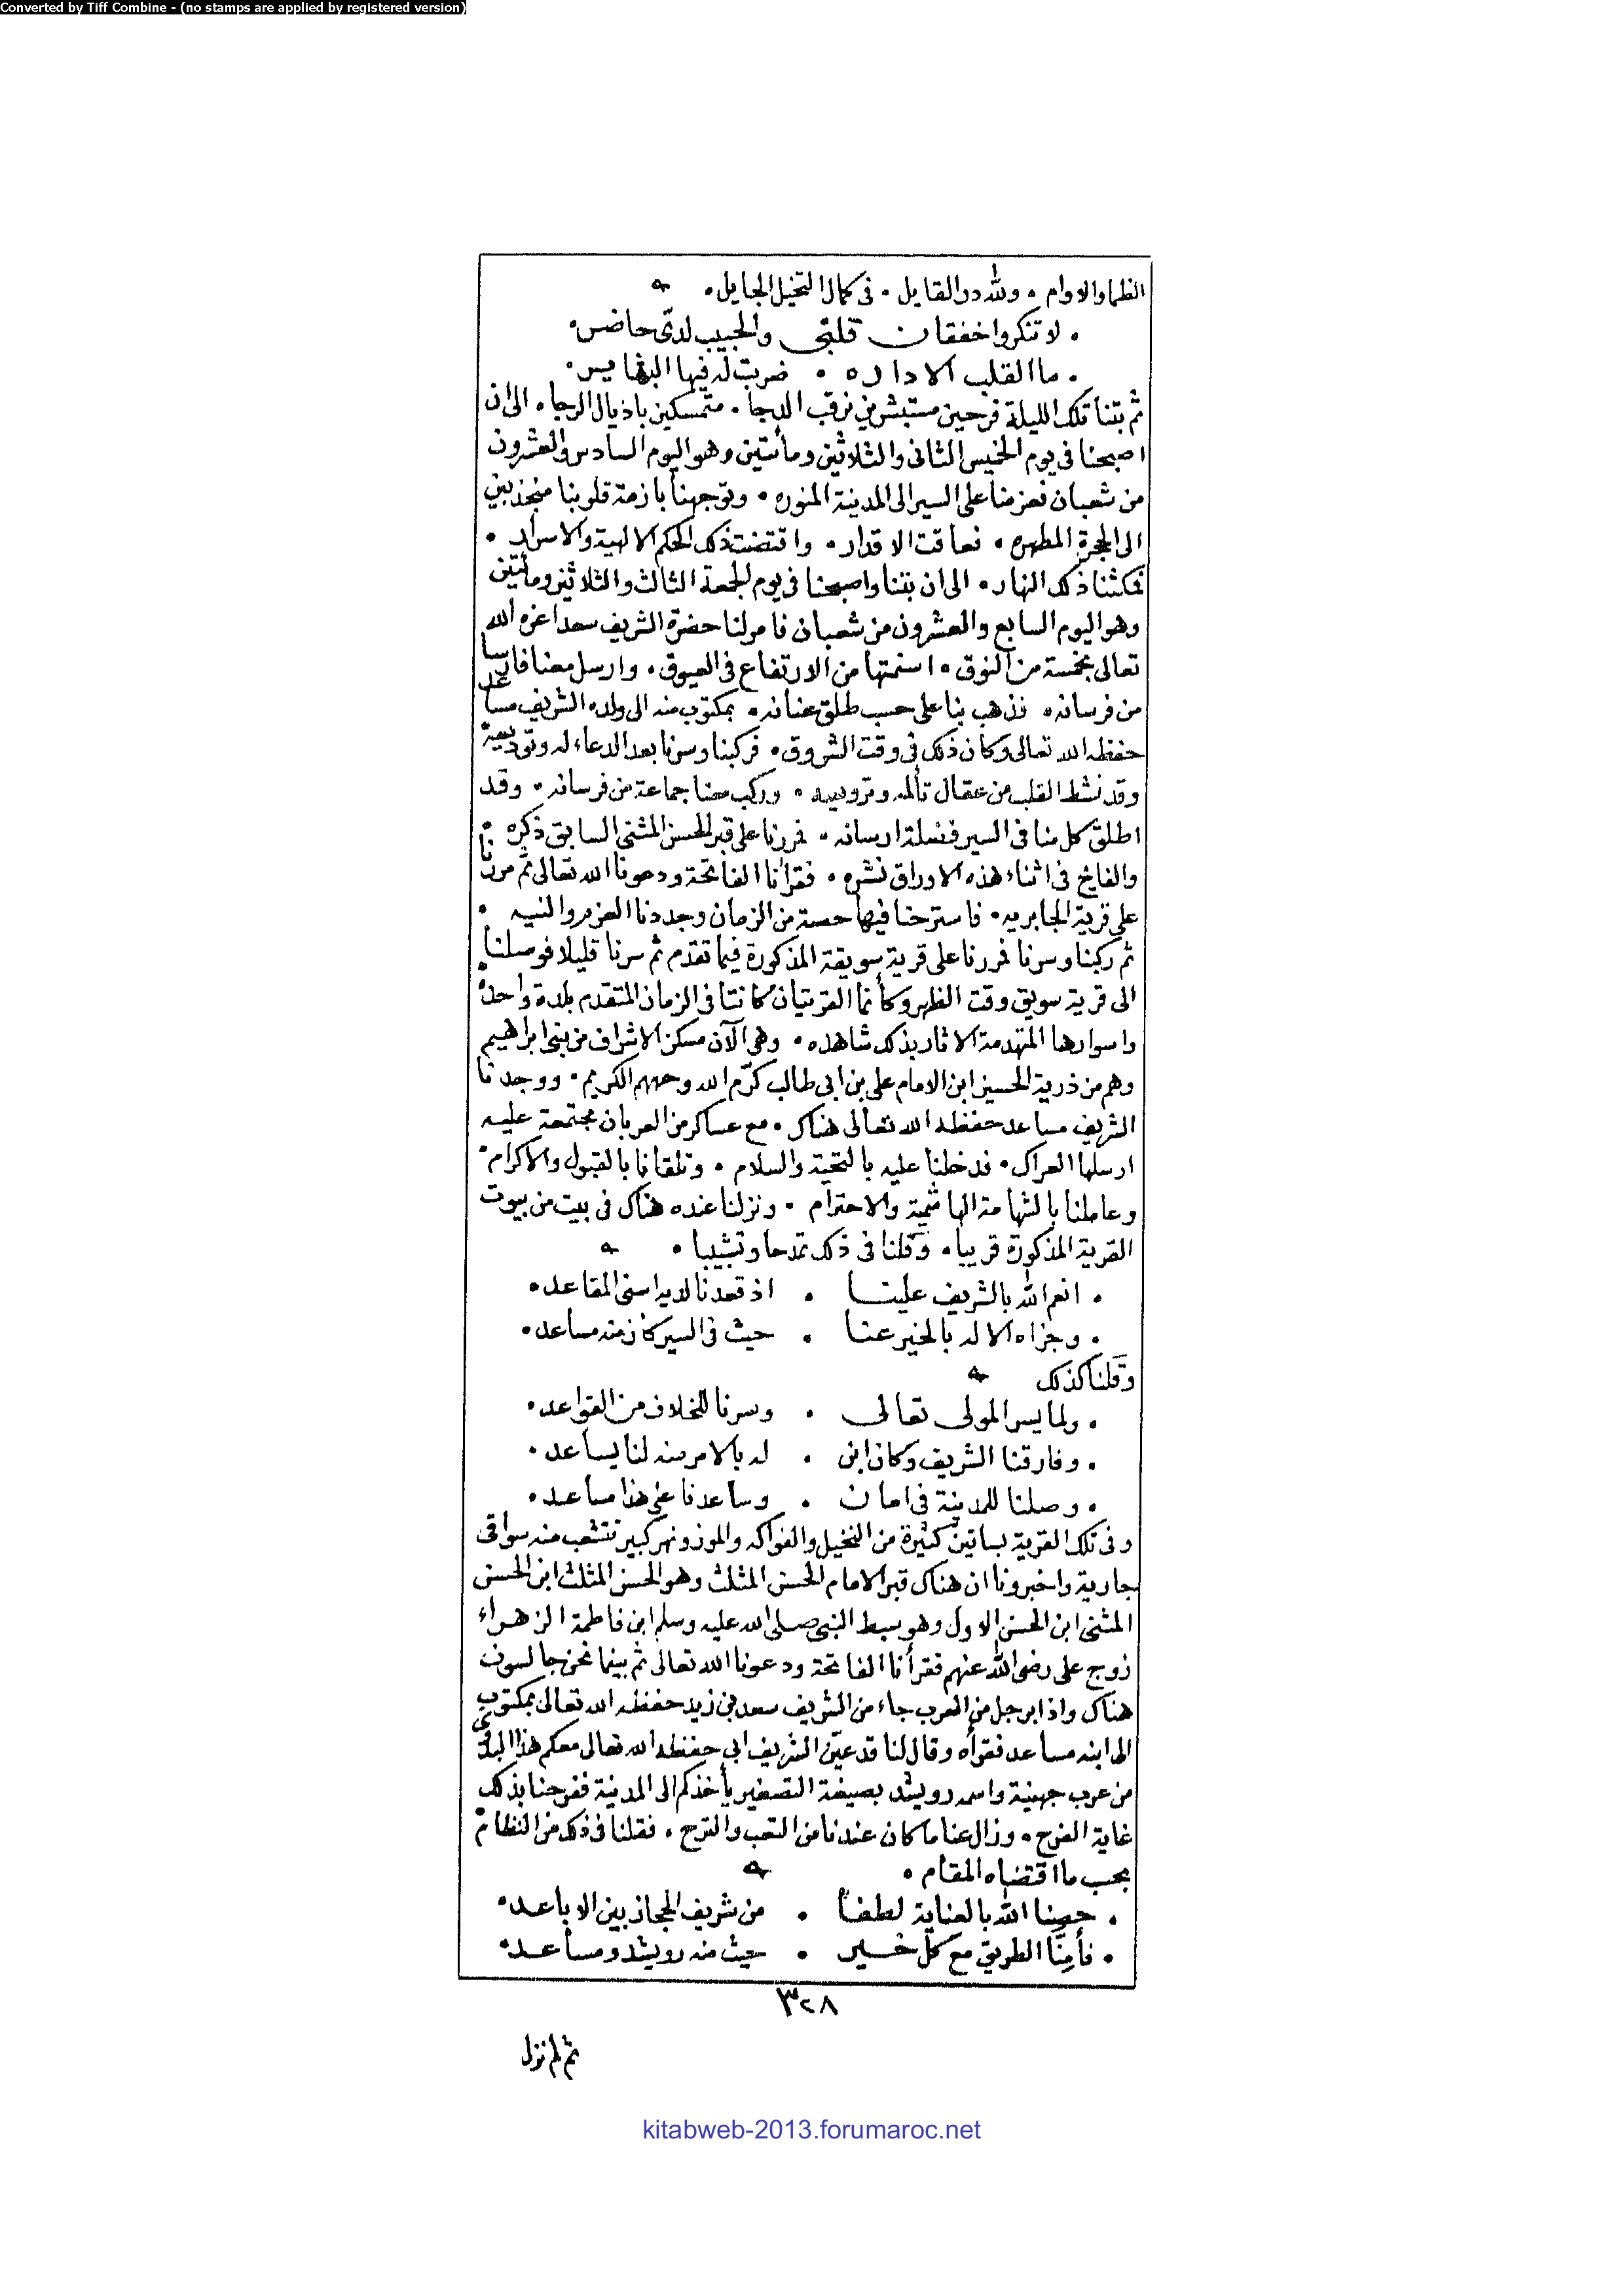 Converted by Tiff Combine - (no stamps are applied by registered version)
الظما والاوام • ولله در القايل • فى كمال التخيل الجايل •
• لا تنكروا خفقان قلبى والحبيب لدى حاضر •
• ما القلب الا داره • ضربت له فيها البشاير •
ثم بتنا تلك الليلة فرحين مستبشرين نرقب الدجا • متمسكين باذيال الرجا • الى ان
اصبحنا فى يوم الخميس الثانى والثلاثين ومأتين وهو اليوم السادس والعشرون
من شعبان فعزمنا على السير الى المدينة المنوره • وتوجهنا بازمة قلوبنا منجذبين
الى الحجرة المطهره • فعاقت الاقدار • واقتضت ذلك الحكم الالهية والاسرار •
فمكثنا ذلك النهار • الى ان بتنا واصبحنا فى يوم الجمعة الثالث والثلاثين ومأتين
وهو اليوم السابع والعشرون من شعبان فامر لنا حضرة الشريف سعد اعزه الله
تعالى بخمسة من النوق • اسنمتها من الارتفاع فى العيوق • وارسل معنا فارسا
من فرسانه • نذهب بنا على حسب طلق عنانه • بمكتوب منه الى ولده الشريف مساعد
حفظه الله تعالى وكان ذلك فى وقت الشروق • فركبنا وسرنا بعد الدعاء له وتوديعه
وقد نشط القلب من عقال تألمه وترويعه • وركب معنا جماعة من فرسانه • وقد
اطلق كل منا فى السير فضلة ارسانه • فمررنا على قبر الحسن المثنى السابق ذكره
والفايح فى اثناء هذه الاوراق نشره • فقرأنا الفاتحة ودعونا الله تعالى ثم مررنا
على قرية الجابريه • فاسترحنا فيها حصة من الزمان وجددنا العزم والنيه •
ثم ركبنا وسرنا فمررنا على قرية سويقة المذكورة فيما تقدم ثم سرنا قليلا فوصلنا
الى قرية سويق وقت الظهر وكأنما القريتان كانتا فى الزمان المتقدم بلدة واحده
واسوارها المتهدمة الاثار بذلك شاهده • وهى الآن مسكن الاشراف من بنى ابراهيم
وهم من ذرية الحسين ابن الامام على بن ابى طالب كرّم الله وجههم الكريم • ووجدنا
الشريف مساعد حفظه الله تعالى هناك • مع عساكر من العربان مجتمعة عليه
ارسلها العراك • فدخلنا عليه بالتحية والسلام • وتلقانا بالقبول والاكرام •
وعاملنا بالشهامة الهاشمية والاحترام • ونزلنا عنده هناك فى بيت من بيوت
القرية المذكورة قريبا • وقلنا فى ذلك تمدحا وتشبيبا •
• انعم الله بالشريف علينا • اذ قعدنا لديه اسنى المقاعد •
• وجزاه الاله بالخير عنا • حيث فى السير كان منه مساعد •
وقلنا كذلك
• ولما يسر المولى تعالى • وسرنا للخلاف من القواعد •
• وفارقنا الشريف وكان ابن • له بالامر منه لنا يساعد •
• وصلنا للمدينة فى امان • وساعدنا على هذا مساعد •
وفى تلك القرية بساتين كثيرة من النخيل والفواكه والموز ونهر كبير تتشعب منه سواقى
جارية واخبرونا ان هناك قبر الامام الحسن المثلث وهو الحسن المثلث ابن الحسن
المثنى ابن الحسن الاول وهو سبط النبى صلى الله عليه وسلم ابن فاطمة الزهراء
زوج على رضى الله عنهم فقرأنا الفاتحة ودعونا الله تعالى ثم بينما نحن جالسون
هناك واذا برجل من العرب جاء من الشريف سعد بن زيد حفظه الله تعالى بمكتوب
الى ابنه مساعد فقرأه وقال لنا قد عيّن الشريف ابى حفظه الله تعالى معكم هذا البدوى
من عرب جهينة واسمه رويشد بصيغة التصغير يأخذكم الى المدينة ففرحنا بذلك
غاية الفرح • وزال عنا ما كان عندنا من التعب والترح • فقلنا فى ذلك من النظام
بحسب ما اقتضاه المقام •
• حصنا الله بالعناية لطفا • من شريف الحجاز بين الاباعد •
• فأمِنَّا الطريق مع كل خير • حيث منه رويشد ومساعد •
٣٢٨
ثم لم نزل
kitabweb-2013.forumaroc.net